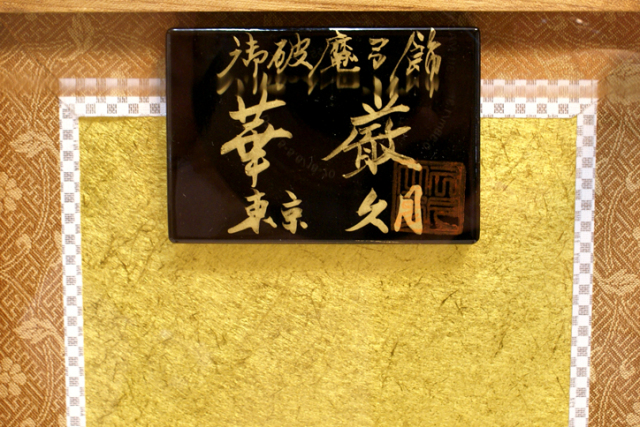 御破魔弓飾
華厳
東京 久月